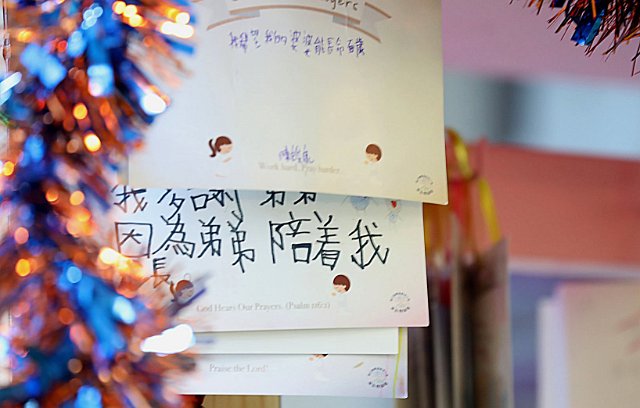 我希望我的婆婆能長命百歲
Work hard, Pray harder
我多謝弟弟
因為弟弟陪着我
長
God Hears Our Prayers. (Psalm 116:2)
Praise the Lord!